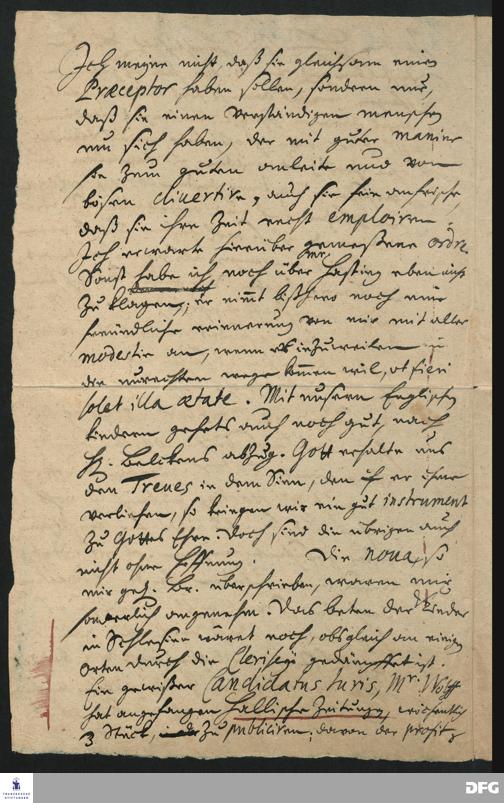 Ich meyne nicht, daß sie gleichsam einen
Præceptor haben sollen, sondern nur,
daß sie einen verständigen menschen
um sich haben, der mit guter manier
sie zum guten anleite und vom
bösen divertire, auch sie fein anfrische,
daß sie ihre Zeit recht emploiren.
Ich erwarte hierüber gemeßene ordre.
Sonst habe ich noch über Mr. Hasting eben nicht
zu klagen; er nimt bißhero noch eine
freündliche erinnerung von mir mit aller
modestie an, wenn es zuweilen
den unrechten wege kommen wil, ut fieri
solet illa ætate. Mit unsern Englischen
kindern gehets auch noch gut, nach
H. Belckens abzug. Gott erhalte uns
den Treues in dem Sinn, den er ihm
verliehen, so kriegen wir ein gut instrument
zu Gottes Ehre. Doch sind die übrigen auch
nicht ohne Hoffnung. Die noua, so
mir geh. Br. überschrieben, waren mir
sonderlich angenehm. Das beten der Kinder
in Schlesien wäret noch, obgleich an einigen
orten durch die Clerisey gedämpffet ist.
Ein gewißer Candidatus Iuris, Mr. Voigt
hat angefangen Hallische Zeitungen, wöchentlich
3 Stück, zu publiciren; davon der profit
DFG